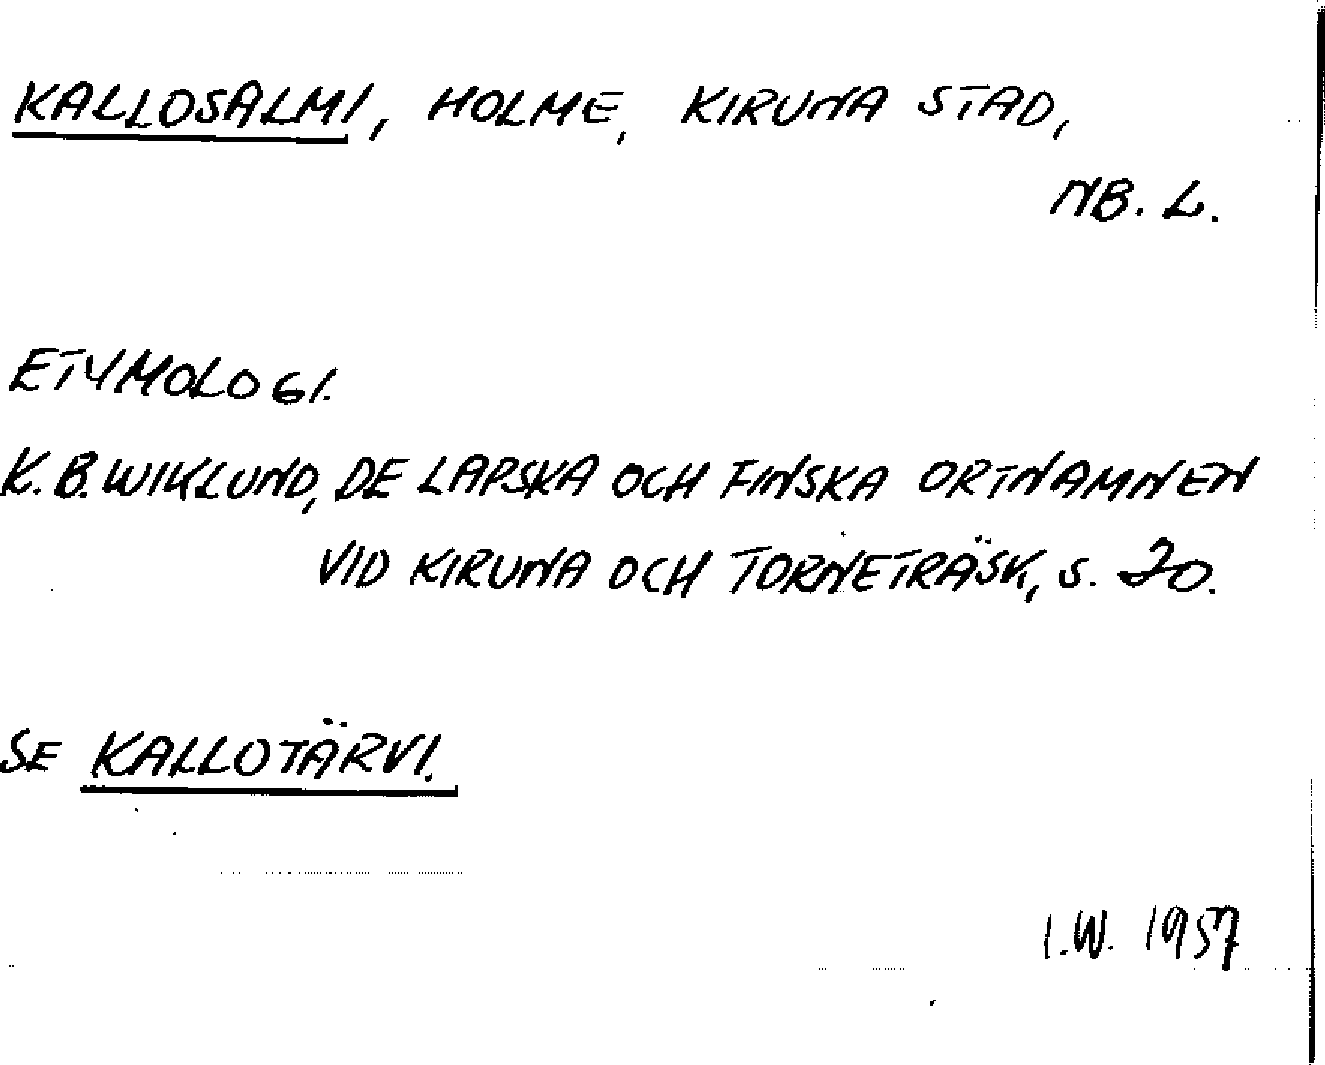 KALLOSALMI, HOLME, KIRUNA STAD,
NB. L.
ETYMOLOGI.
K.B. WIKLUND, DE LAPSKA OCH FINSKA ORTNAMNEN
VID KIRUNA OCH TORNETRÄSK, s. 20.
SE KALLOTÄRVI.
I.W. 1957